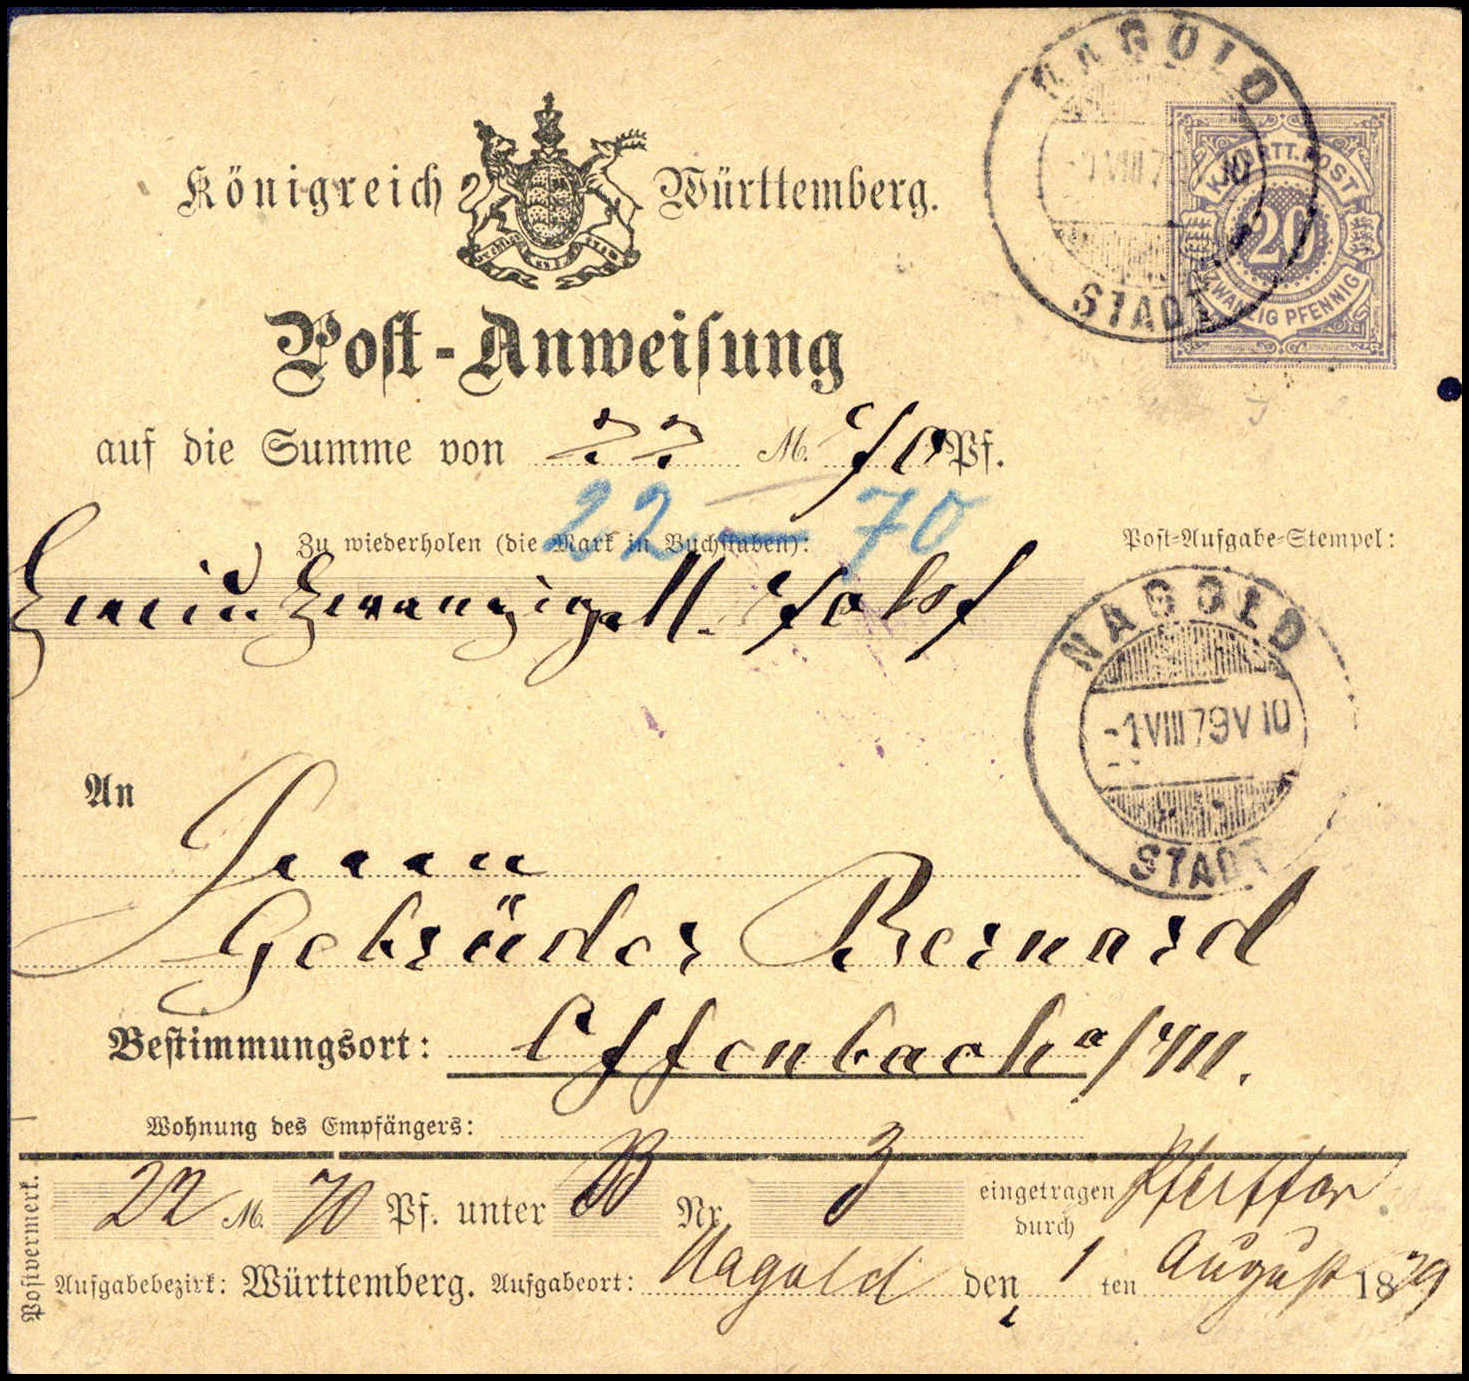 NAGOLD
-1 VIII 79 10
STADT
K. WÜRTT. POST
20
ZWANZIG PFENNIG
Königreich Württemberg.
Post-Anweisung
auf die Summe von 22 M. 70 Pf.
22 — 70
Zu wiederholen (die Mark in Buchstaben):
Zweiundzwanzig M.
Post-Aufgabe-Stempel:
NAGOLD
-1 VIII 79 V 10
STADT
An
Herrn
Gebrüder Bernard
Bestimmungsort: Offenbach a/M.
Wohnung des Empfängers:
Postvermerk.
22 M. 70 Pf. unter B Nr 3 eingetragen durch Pfeiffer
Aufgabebezirk: Württemberg. Aufgabeort: Nagold den 1 ten August 1879